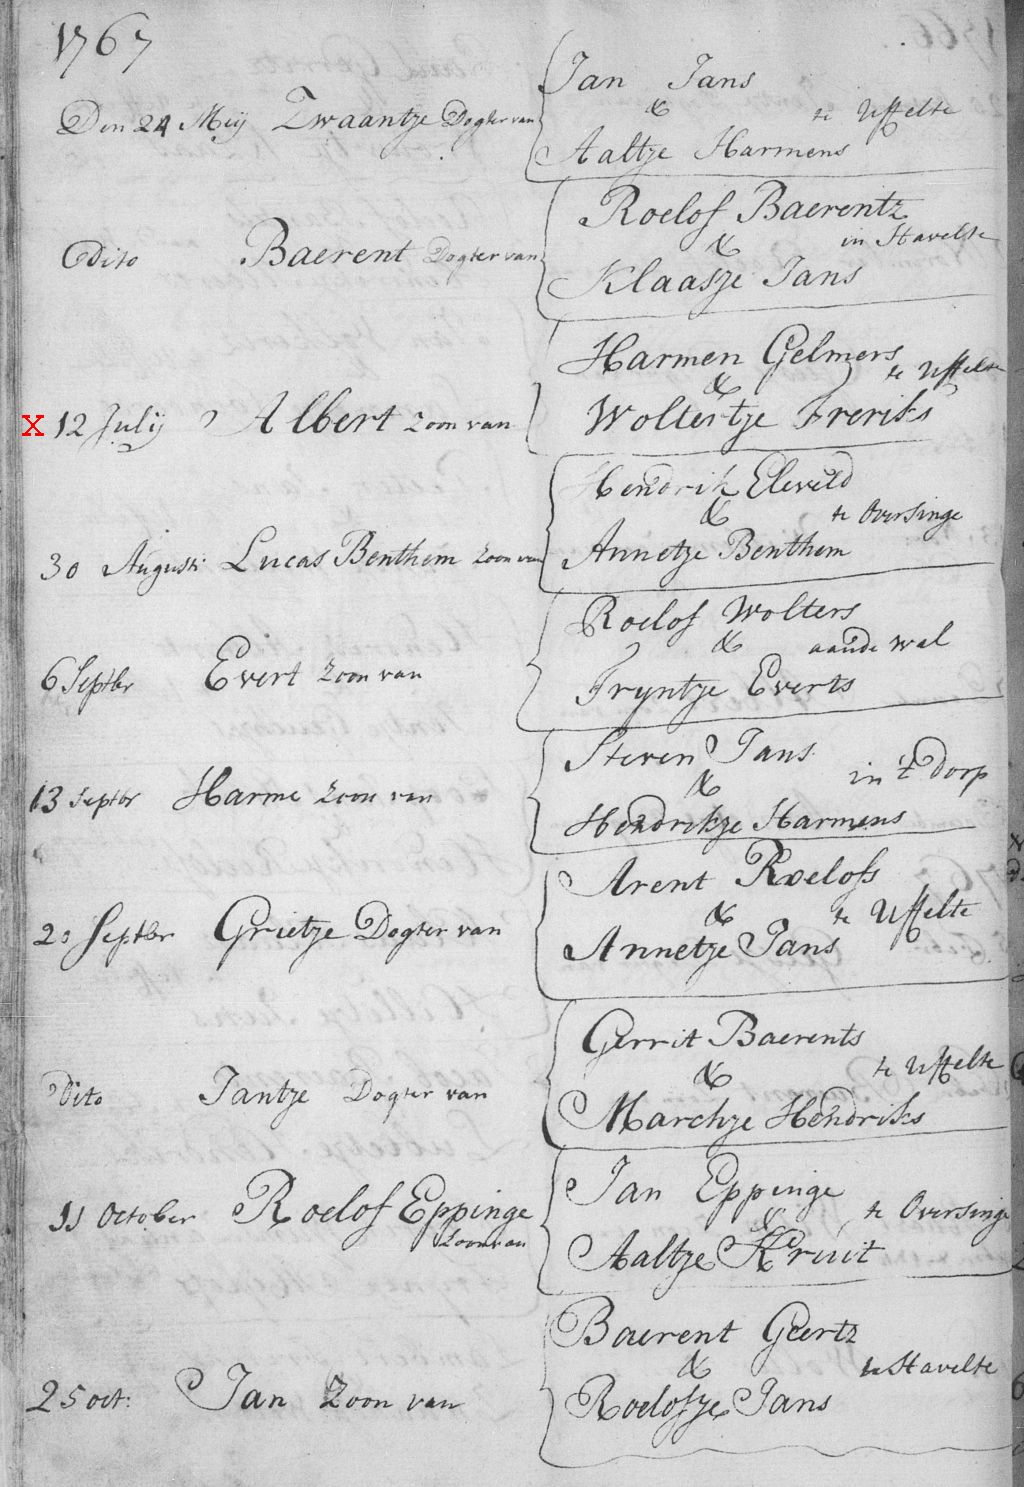 1767
Jan Jans
&
te Uffelte
Den 24 Meij Zwaantje Dogter van
Aaltje Harmens
Roelof Baerentz
&
in Havelte
Dito Baerent Dogter van
Klaasje Jans
Harmen Gelmers
&
te Uffelte
X 12 Julij Albert Zoon van
Woltertje Freriks
Hendrik Eleveld
&
te Oversinge
30 Augusti Lucas Benthem Zoon van
Annetje Benthem
Roelof Wolters
&
aan de Wal
6 Septbr Evert Zoon van
Tryntje Everts
Steven Jans
&
in 't Dorp
13 Septbr Harme Zoon van
Hendrikje Harmens
Arent Roelofs
&
te Uffelte
20 Septbr Grietje Dogter van
Annetje Jans
Gerrit Baerents
&
te Uffelte
Dito Jantje Dogter van
Marchje Hendriks
Jan Eppinge
&
te Oversinge
11 October Roelof Eppinge
Zoon van
Aaltje Kruit
Baerent Geertz
&
te Havelte
25 oct: Jan Zoon van
Roelofje Jans